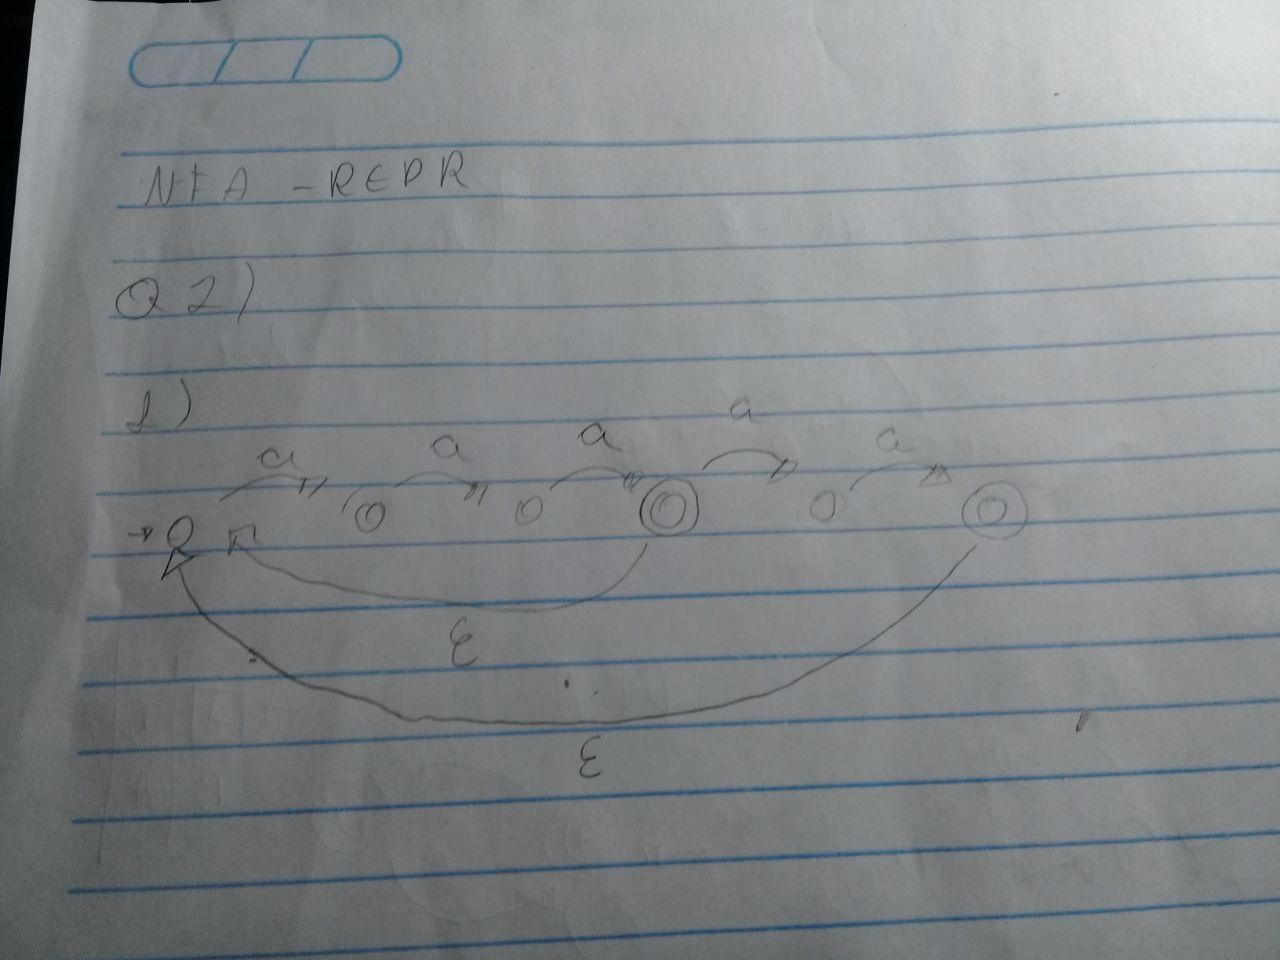 NFA - REPR
Q 2)
1)
a a a a a
ε
ε